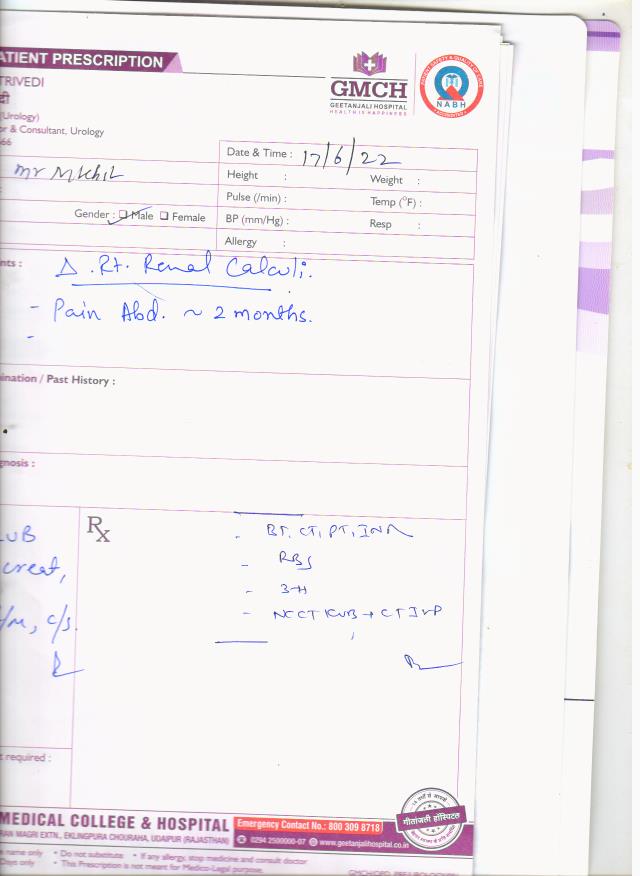 ATIENT PRESCRIPTION
GMCH
GEETANJALI HOSPITAL
HEALTH IS HAPPINESS
PATIENT SAFETY & QUALITY OF CARE
NABH
ACCREDITED
TRIVEDI
दी
Urology)
or & Consultant, Urology
66
Mr
Date & Time : 17/6/22
Height :
Weight :
Pulse (/min) :
Temp (°F) :
Gender : Male Female
BP (mm/Hg) :
Resp :
Allergy :
nts :
Δ . Rt. Renal Calculi.
- Pain Abd. ~ 2 months.
-
ination / Past History :
gnosis :
UB
creat,
/m, c/s.
Rx
- BT, CT, PT, INR
- RBS
- 3H
- NCCT KUB → CT IVP
t required :
MEDICAL COLLEGE & HOSPITAL
RAN MAGRI EXTN., EKLINGPURA CHOURAHA, UDAIPUR (RAJASTHAN)
Emergency Contact No.: 800 309 8718
0294 2500000-07 www.geetanjalihospital.co.in
गीतांजली हॉस्पिटल
e name only • Do not substitute • If any allergy, stop medicine and consult doctor
Days only • This Prescription is not meant for Medico-Legal purpose.